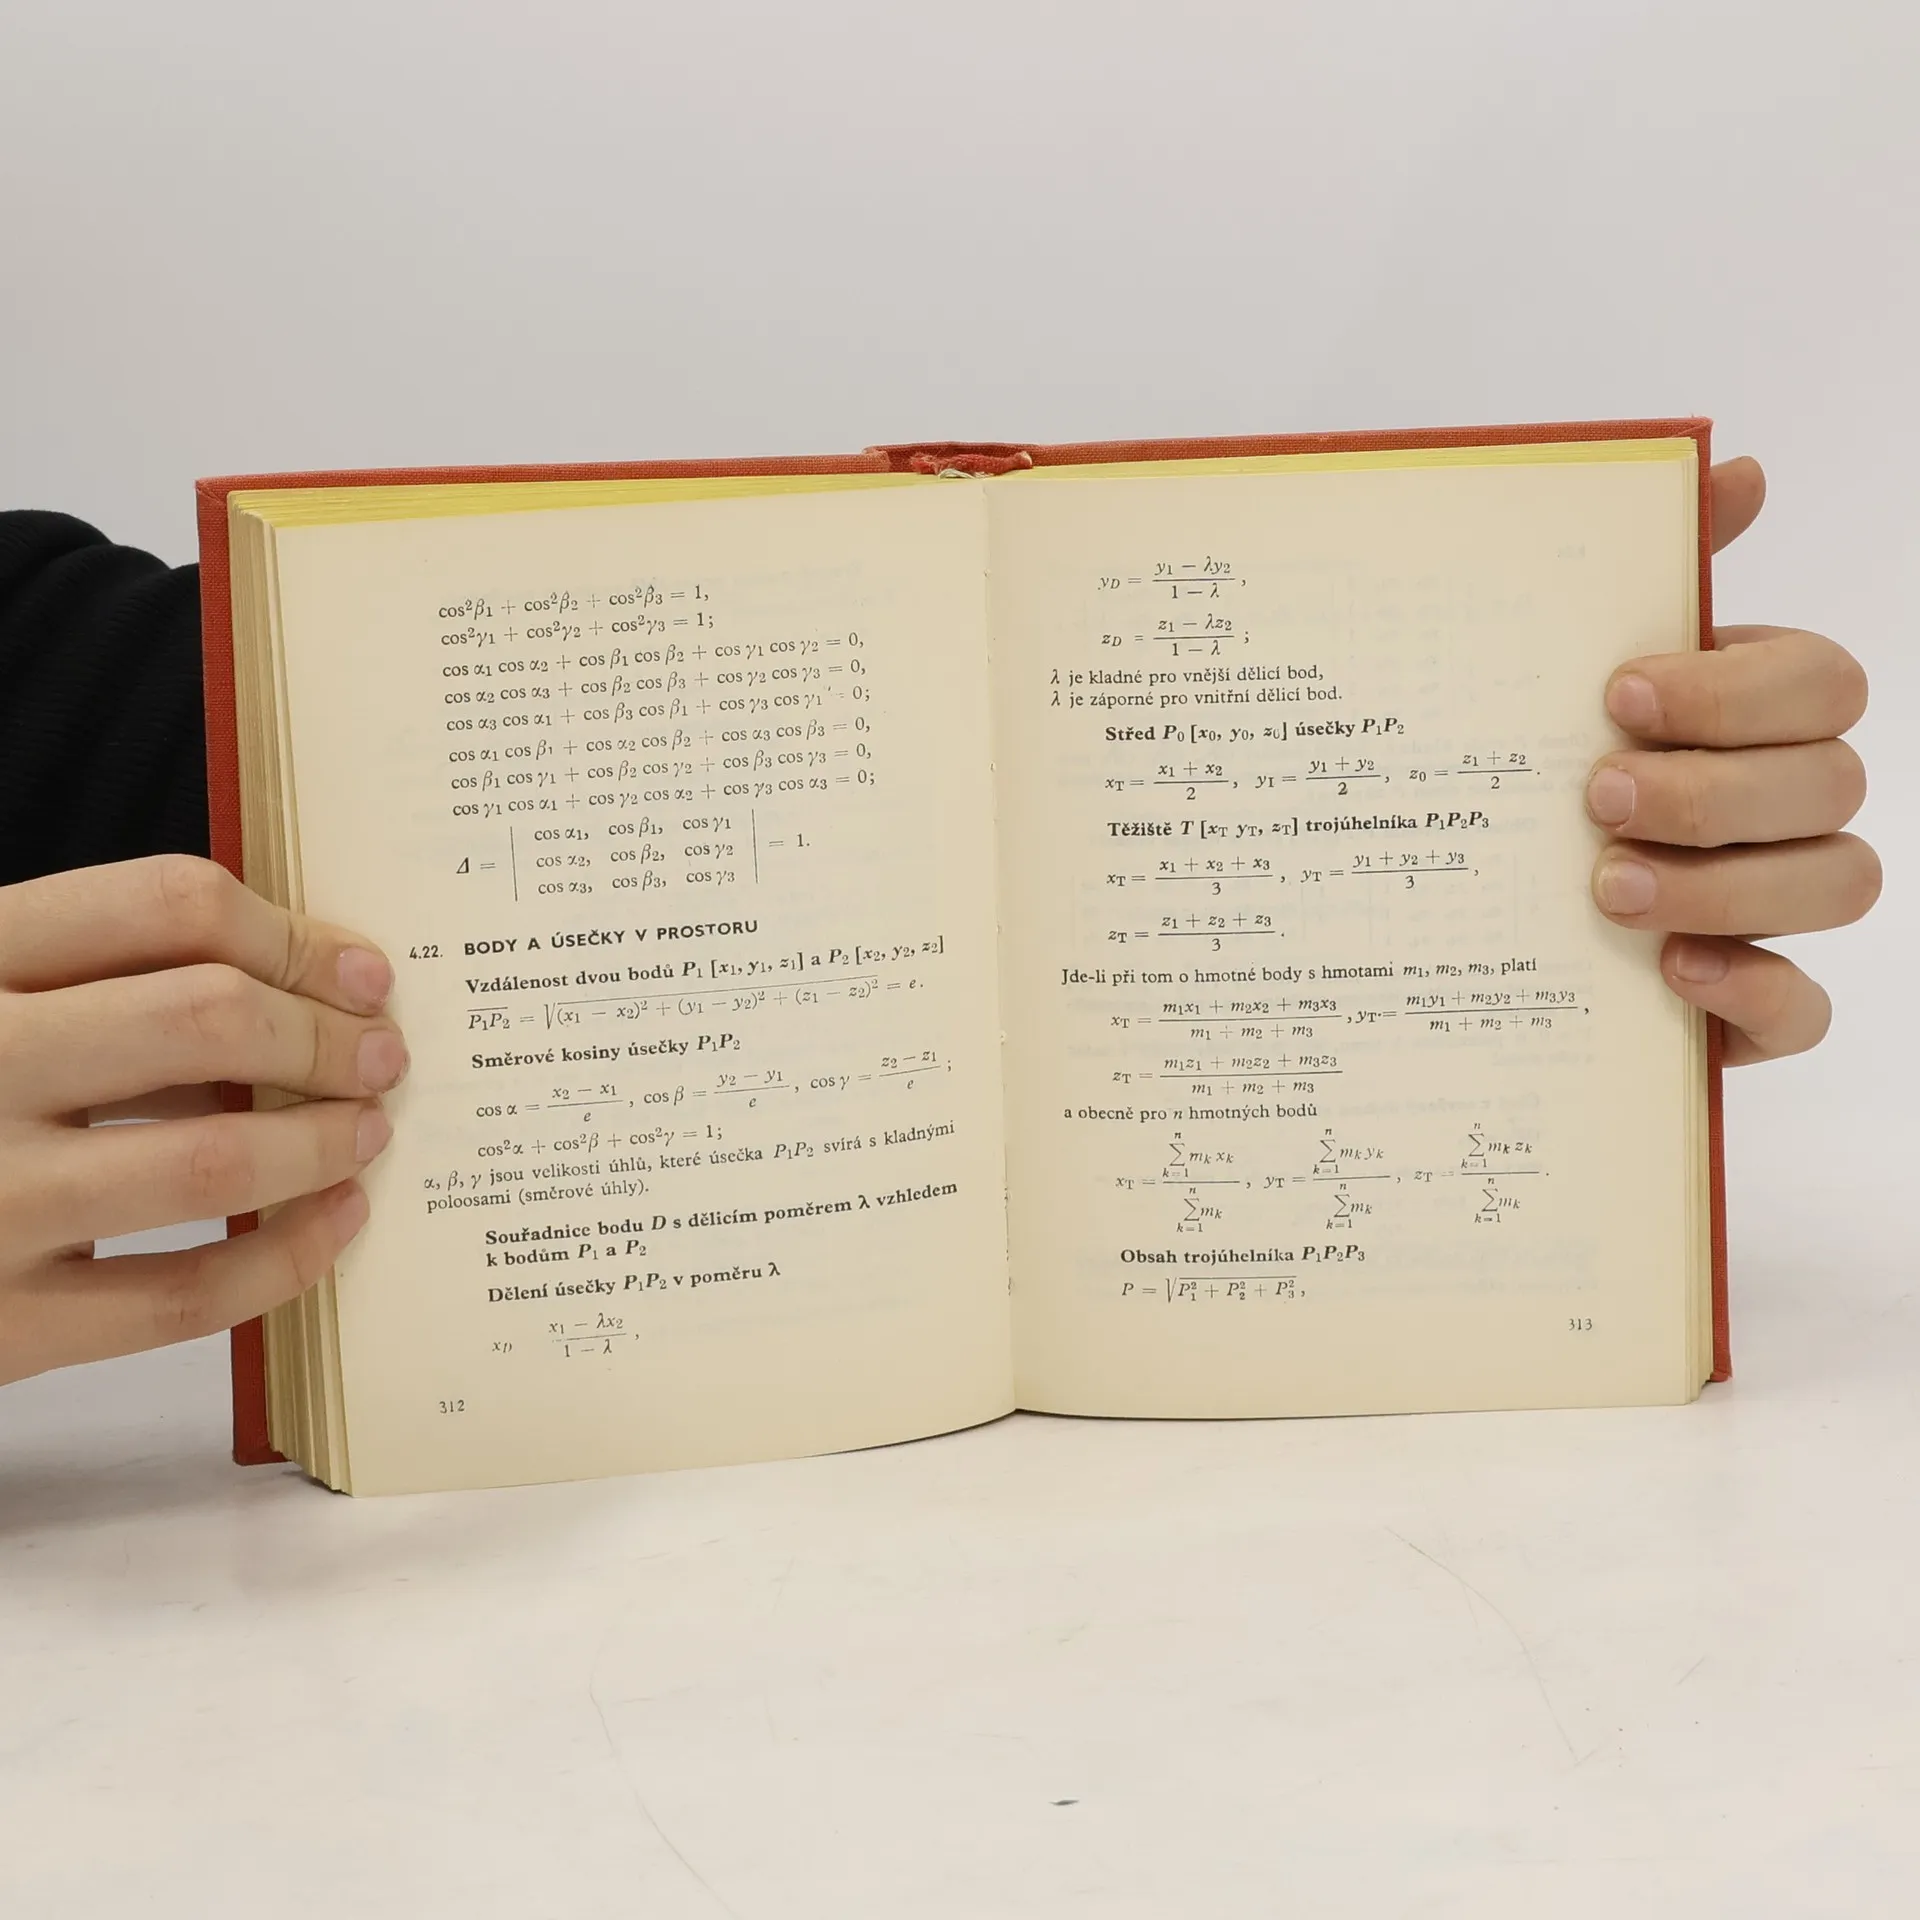 cos²β₁ + cos²β₂ + cos²β₃ = 1,
cos²γ₁ + cos²γ₂ + cos²γ₃ = 1;
cos α₁ cos α₂ + cos β₁ cos β₂ + cos γ₁ cos γ₂ = 0,
cos α₂ cos α₃ + cos β₂ cos β₃ + cos γ₂ cos γ₃ = 0,
cos α₃ cos α₁ + cos β₃ cos β₁ + cos γ₃ cos γ₁ = 0;
cos α₁ cos β₁ + cos α₂ cos β₂ + cos α₃ cos β₃ = 0,
cos β₁ cos γ₁ + cos β₂ cos γ₂ + cos β₃ cos γ₃ = 0,
cos γ₁ cos α₁ + cos γ₂ cos α₂ + cos γ₃ cos α₃ = 0;
Δ = | cos α₁, cos β₁, cos γ₁ |
| cos α₂, cos β₂, cos γ₂ | = 1.
| cos α₃, cos β₃, cos γ₃ |
4.22. BODY A ÚSEČKY V PROSTORU
Vzdálenost dvou bodů P₁ [x₁, y₁, z₁] a P₂ [x₂, y₂, z₂]
P₁P₂ = √(x₁ − x₂)² + (y₁ − y₂)² + (z₁ − z₂)² = e.
Směrové kosiny úsečky P₁P₂
cos α = (x₂ − x₁)/e, cos β = (y₂ − y₁)/e, cos γ = (z₂ − z₁)/e;
cos²α + cos²β + cos²γ = 1;
α, β, γ jsou velikosti úhlů, které úsečka P₁P₂ svírá s kladnými
poloosami (směrové úhly).
Souřadnice bodu D s dělicím poměrem λ vzhledem
k bodům P₁ a P₂
Dělení úsečky P₁P₂ v poměru λ
x_D (x₁ − λx₂)/(1 − λ),
312
y_D = (y₁ − λy₂)/(1 − λ),
z_D = (z₁ − λz₂)/(1 − λ);
λ je kladné pro vnější dělicí bod,
λ je záporné pro vnitřní dělicí bod.
Střed P₀ [x₀, y₀, z₀] úsečky P₁P₂
x_T = (x₁ + x₂)/2, y_I = (y₁ + y₂)/2, z₀ = (z₁ + z₂)/2.
Těžiště T [x_T y_T, z_T] trojúhelníka P₁P₂P₃
x_T = (x₁ + x₂ + x₃)/3, y_T = (y₁ + y₂ + y₃)/3,
z_T = (z₁ + z₂ + z₃)/3.
Jde-li při tom o hmotné body s hmotami m₁, m₂, m₃, platí
x_T = (m₁x₁ + m₂x₂ + m₃x₃)/(m₁ + m₂ + m₃), y_T = (m₁y₁ + m₂y₂ + m₃y₃)/(m₁ + m₂ + m₃),
z_T = (m₁z₁ + m₂z₂ + m₃z₃)/(m₁ + m₂ + m₃)
a obecně pro n hmotných bodů
x_T = (∑_{k=1}^{n} m_k x_k)/(∑_{k=1}^{n} m_k), y_T = (∑_{k=1}^{n} m_k y_k)/(∑_{k=1}^{n} m_k), z_T = (∑_{k=1}^{n} m_k z_k)/(∑_{k=1}^{n} m_k).
Obsah trojúhelníka P₁P₂P₃
P = √P₁² + P₂² + P₃²,
313